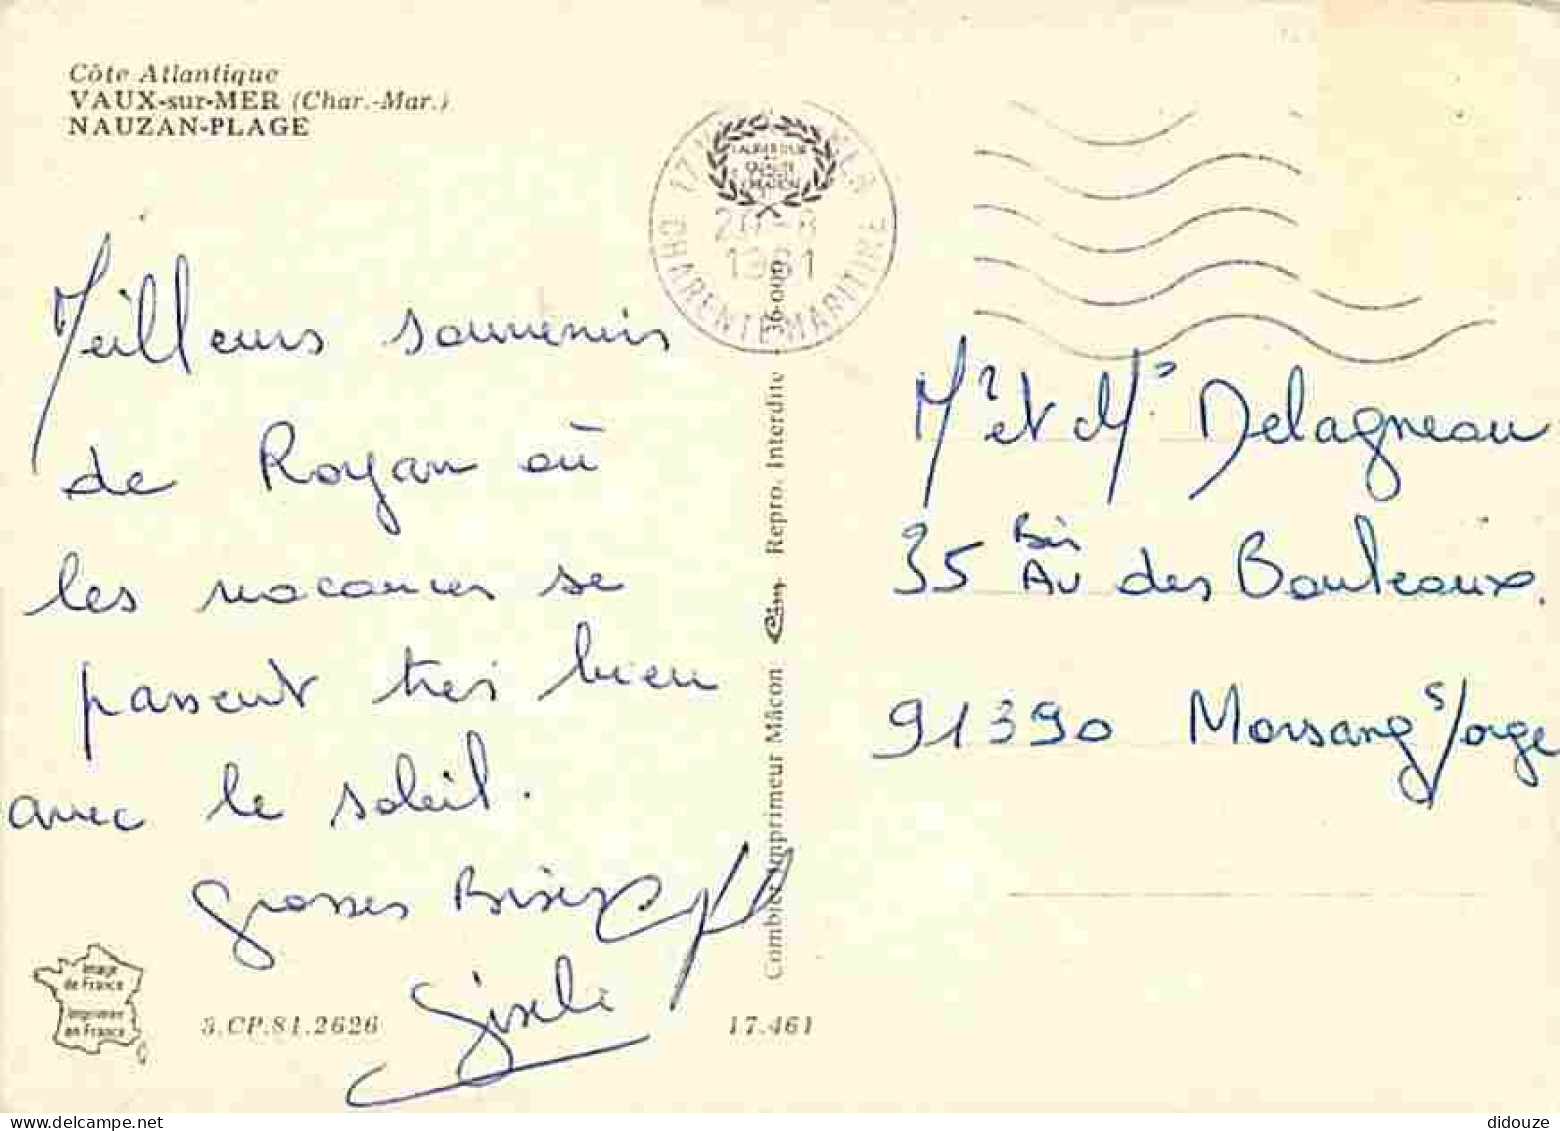 Côte Atlantique
VAUX-sur-MER (Char.-Mar.)
NAUZAN-PLAGE
Meilleurs souvenirs
de Royan où
les vacances se
passent très bien
avec le soleil.
Grosses Bises
Gisele
Image
de France
Imprimée
en France
3.CP.81.2626
17.461
Combier Imprimeur Mâcon Cim Repro. Interdite
36-000
17
CHARENTE MARITIME
20-8
1981
Mr et Me Delagneau
35 Bis Av des Bouleaux.
91390 Morsang s/orge
didouze